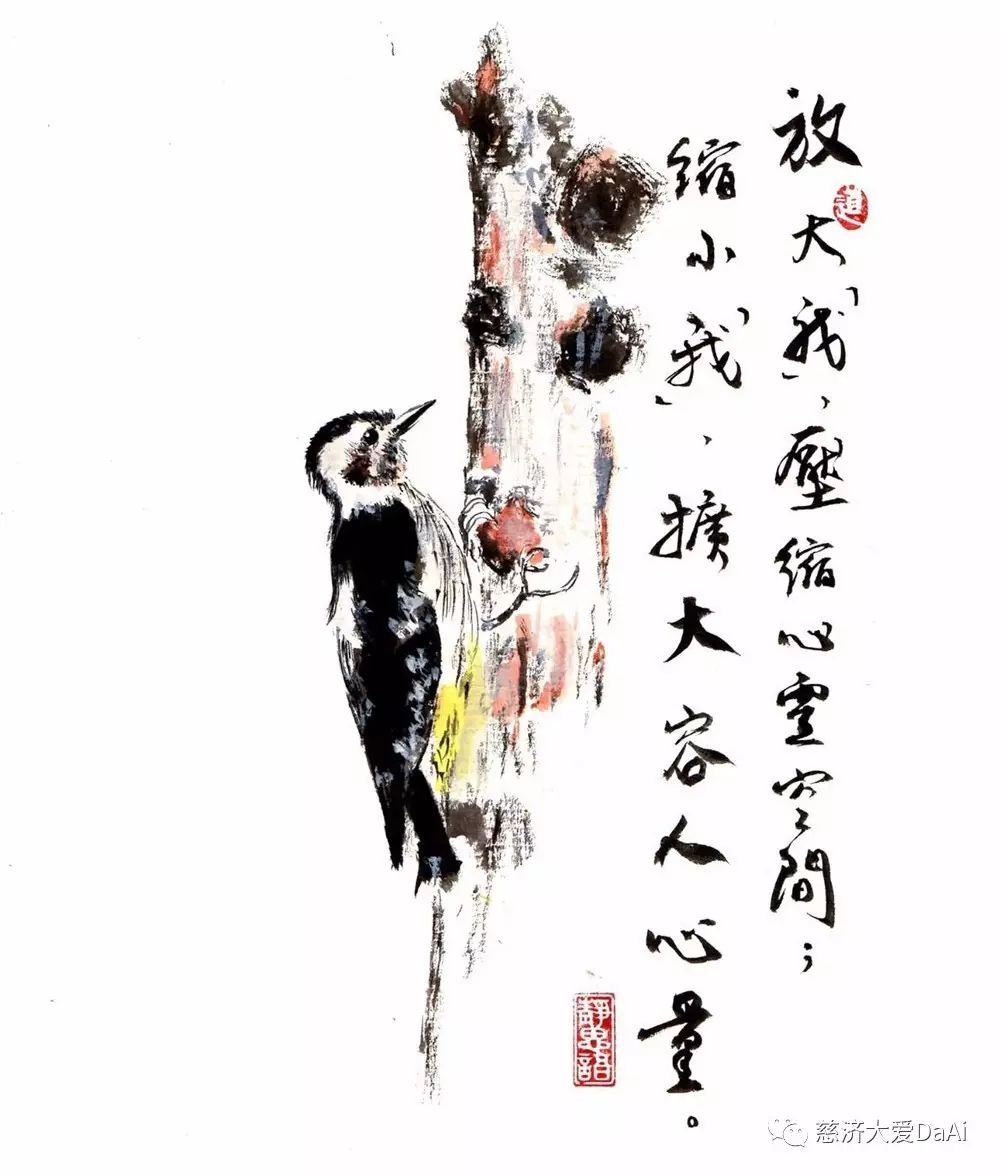 放大「我」，壓縮心靈空間；
縮小「我」，擴大容人心量。
靜思語
慈济大爱DaAi